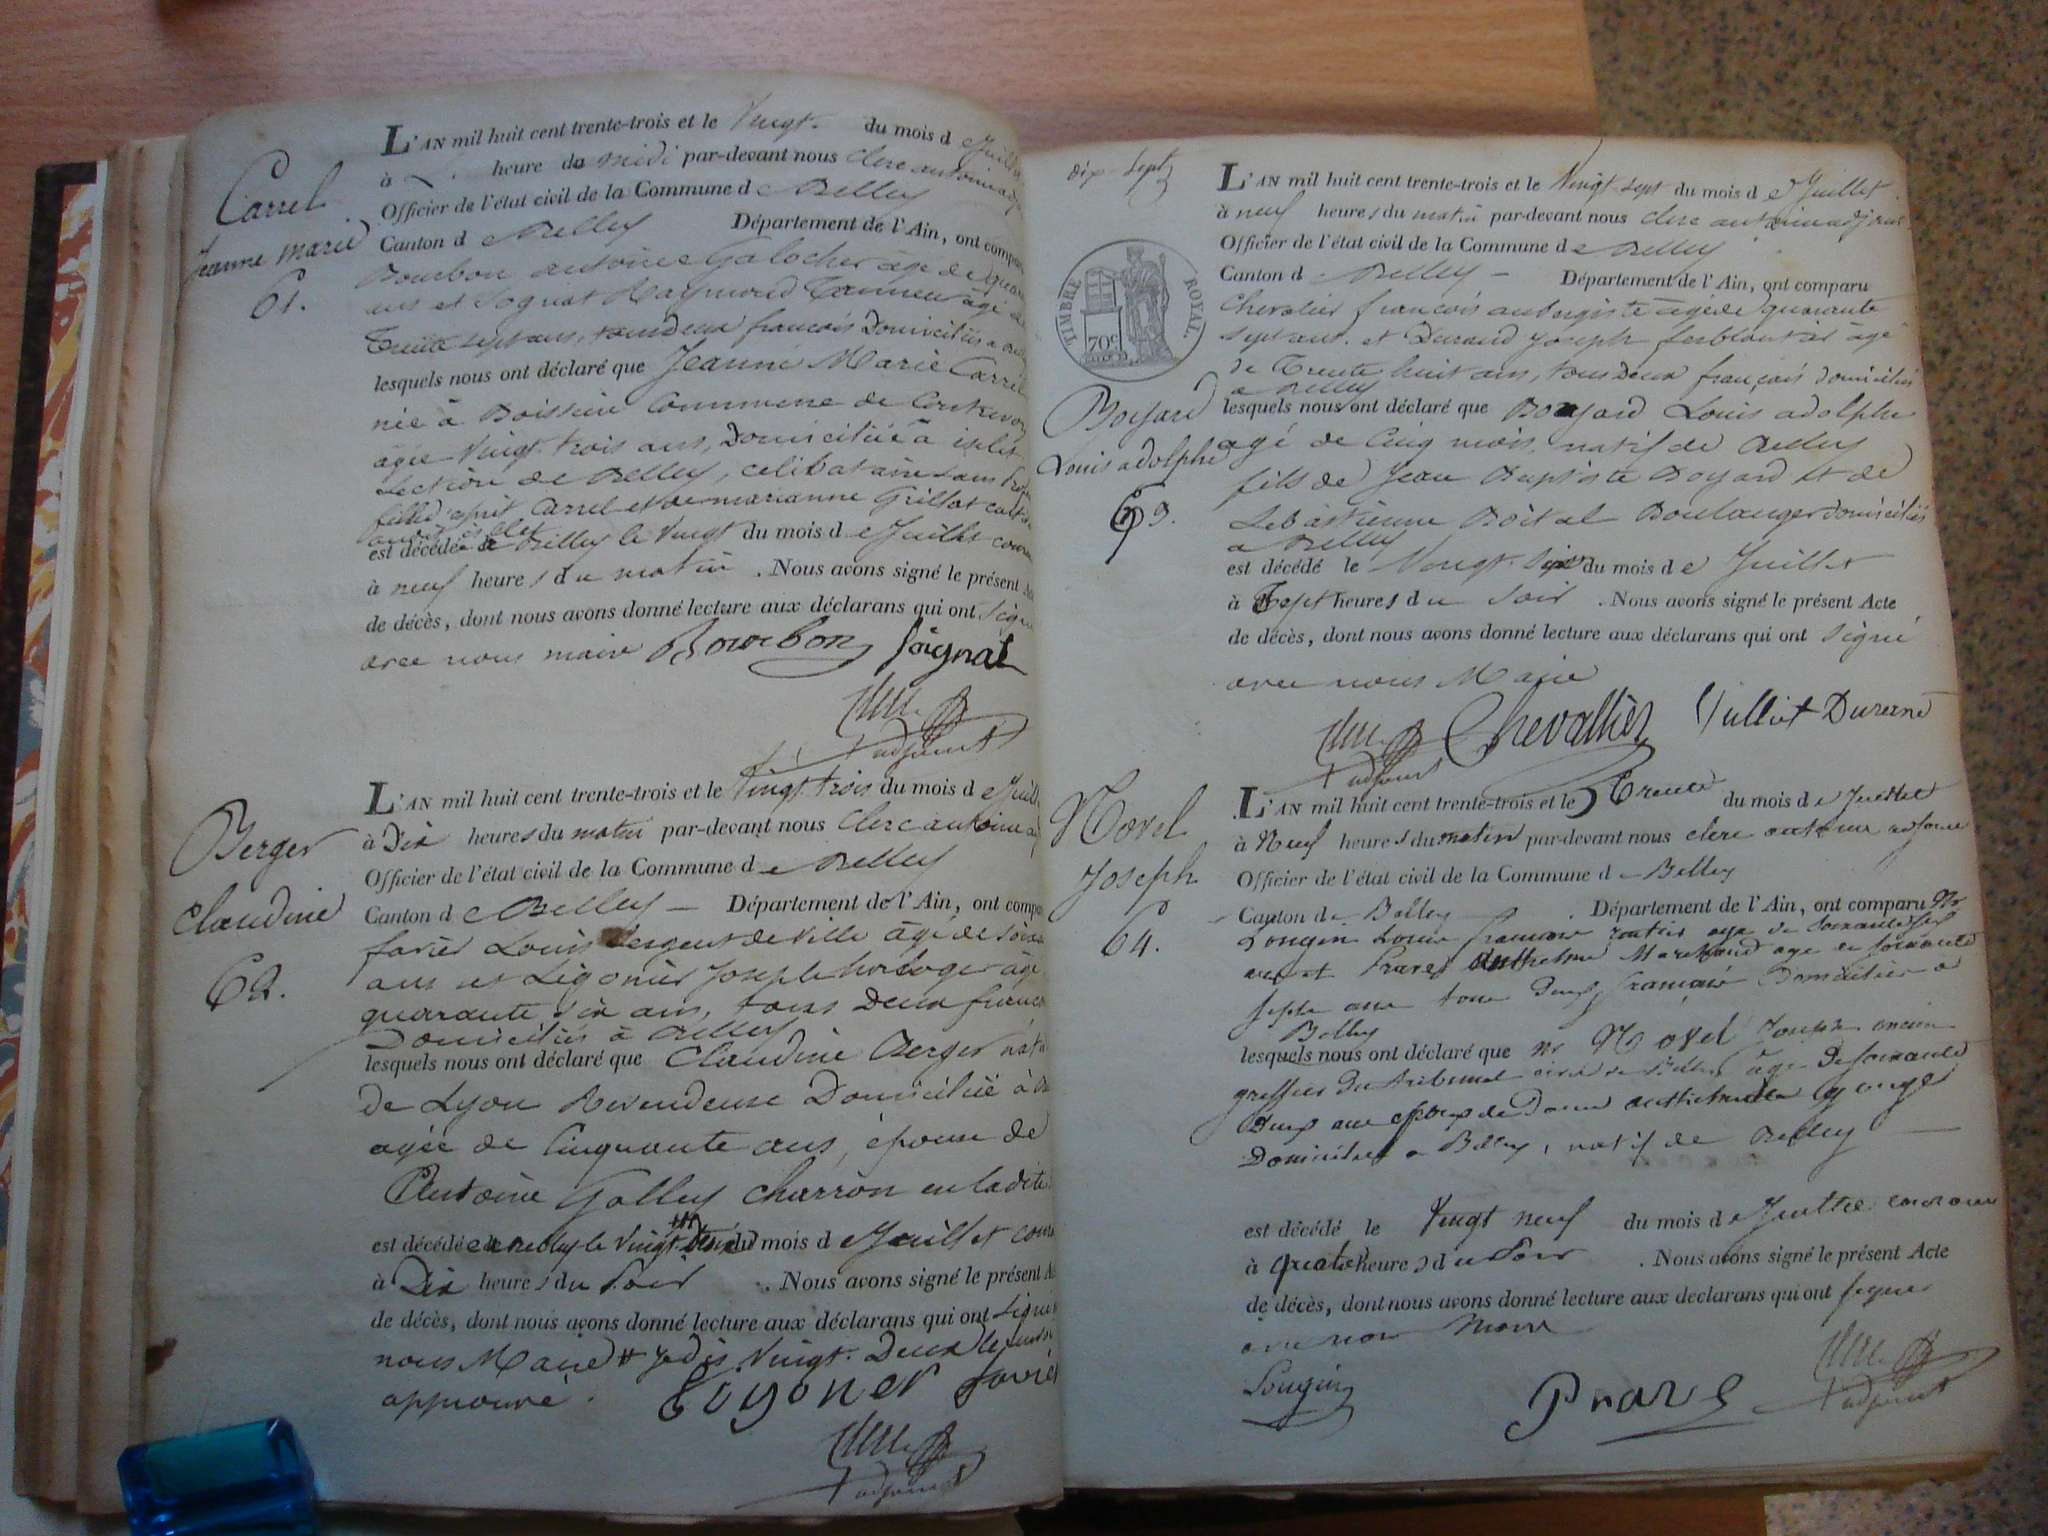 Carrel
Jeanne marie
61.
L'AN mil huit cent trente-trois et le Vingt. du mois d e Juillet
à heure du midi par-devant nous clerc antoine adj
Officier de l'état civil de la Commune d e Belley
Canton d e Belley Département de l'Ain, ont comparu
Bourbon antoine Galocher âgé de quaran
ans et Sognat Raymond Tanneur âgé de
Trente sept ans, tous deux francois Domiciliés a
lesquels nous ont déclaré que Jeanne Marie Carrel
née à Boissieu Commune de Contrevoz
âgée Vingt trois ans, Domiciliée à
Section de Belley, celibataire sans
fille d'esprit Carrel et de marianne Grillot
est décédée a Belley le Vingt du mois d e Juillet couran
à neuf heures du matin . Nous avons signé le présent
de décès, dont nous avons donné lecture aux déclarans qui ont signé
avec nous maire Bourbon Soignat
Clerc
adjoint
Berger
Claudine
62.
L'AN mil huit cent trente-trois et le Vingt trois du mois d e Juill
à Dix heures du matin par-devant nous Clerc antoine
Officier de l'état civil de la Commune d e Belley
Canton d e Belley — Département de l'Ain, ont compa
favier Louis Sergent de Ville âgé de
ans et Ligonier Joseph horloger âgé
quarante six ans, tous Deux franc
Domiciliés à Belley
lesquels nous ont déclaré que Claudine Berger
de Lyon Revendeuse Domiciliée à
agée de Cinquante ans, épouse de
Antoine Golley charron en ladite
est décédée a Belley le Vingt du mois d e Juillet cour
à Dix heures du Soir . Nous avons signé le présent A
de décès, dont nous avons donné lecture aux déclarans qui ont Signé
nous Maire # Je dis Vingt. Deux
approuvé.
Ligoner favier
Clerc
adjoint
dix-Sept
TIMBRE ROYAL.
70c
Boyard
Louis adolphe
63.
L'AN mil huit cent trente-trois et le Vingt sept du mois d e Juillet
à neuf heures du matin par-devant nous clerc antoine adjoint
Officier de l'état civil de la Commune d e Belley
Canton d e Belley — Département de l'Ain, ont comparu
Chevalier francois aubergiste âgé de quarante
sept ans. et Durand Joseph ferblantier âgé
de Trente huit ans, tous Deux français domiciliés
a Belley
lesquels nous ont déclaré que Boyard Louis adolphe
agé de Cinq mois, natif de Belley
fils de Jean Baptiste Boyard et de
Sebastienne Boital Boulanger domiciliés
a Belley
est décédé le Vingt Six du mois d e Juillet
à Sept heures du Soir . Nous avons signé le présent Acte
de décès, dont nous avons donné lecture aux déclarans qui ont signé
avec nous Maire
Clerc Chevallier Durand
adjoint
Novel
Joseph
64.
L'AN mil huit cent trente-trois et le Trente du mois d e Juillet
à Neuf heures du matin par-devant nous clerc antoine adjoint
Officier de l'état civil de la Commune d e Belley
Canton d e Belley . Département de l'Ain, ont comparu Mr
Longin Louis francois rentier age de Soixante
ans et Prave Anthelme Marchand age de soixante
septe ans tous Deux francais Domicilies a
Belley
lesquels nous ont déclaré que Mr Novel Joseph ancien
greffier du tribunal civil de Belley âge De soixante
Deux ans epoux de Dame
Domicilies a Belley, natif de Belley —
est décédé le Vingt neuf du mois d e Juillet courant
à quatre heures du Soir . Nous avons signé le présent Acte
de décès, dont nous avons donné lecture aux déclarans qui ont signé
avec nous Maire
Longin
Prave
Clerc
adjoint